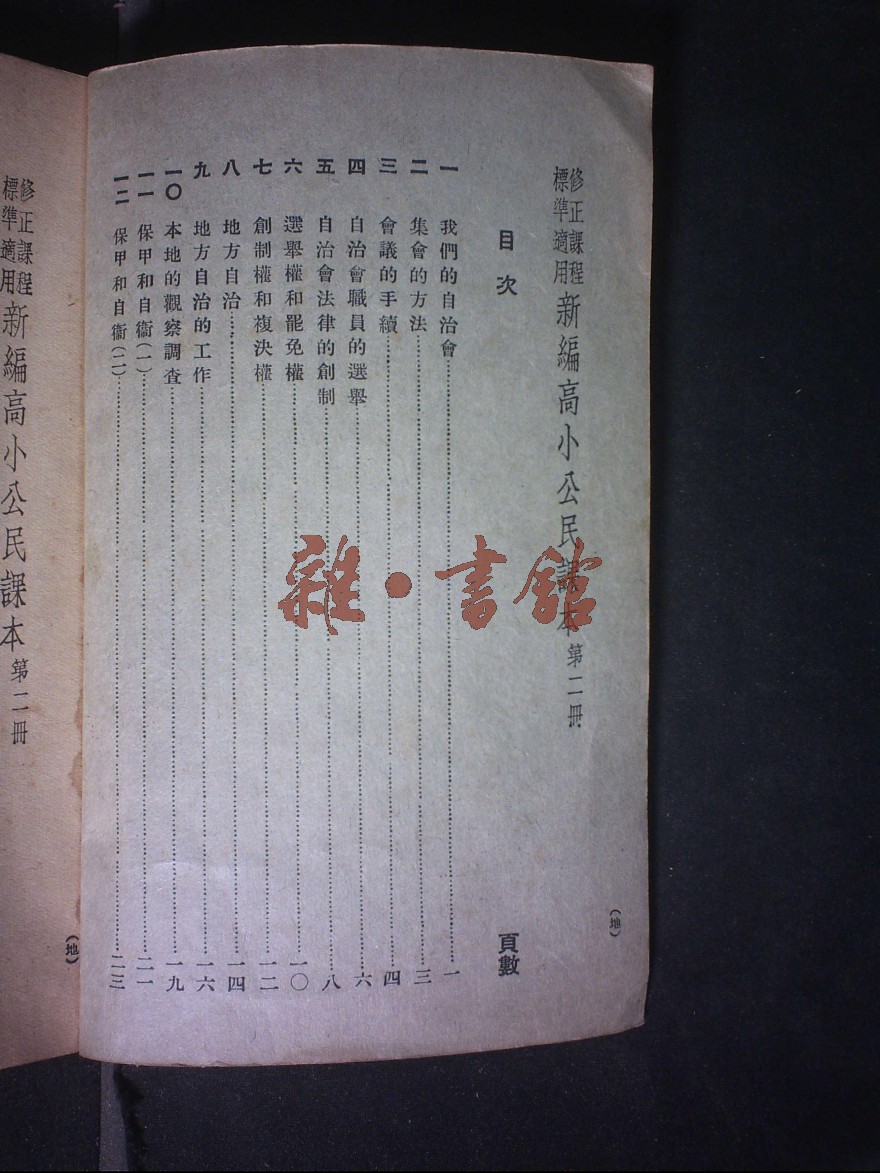 修正課程標準適用 新編高小公民課本 第二冊
（地）
目次
頁數
一 我們的自治會……一
二 集會的方法……三
三 會議的手續……四
四 自治會職員的選舉……六
五 自治會法律的創制……八
六 選舉權和罷免權……一〇
七 創制權和複決權……一二
八 地方自治……一四
九 地方自治的工作……一六
一〇 本地的觀察調查……一九
一一 保甲和自衞（一）……二一
一二 保甲和自衞（二）……二三
修正課程標準適用 新編高小公民課本 第二冊
（地）
雜·書館